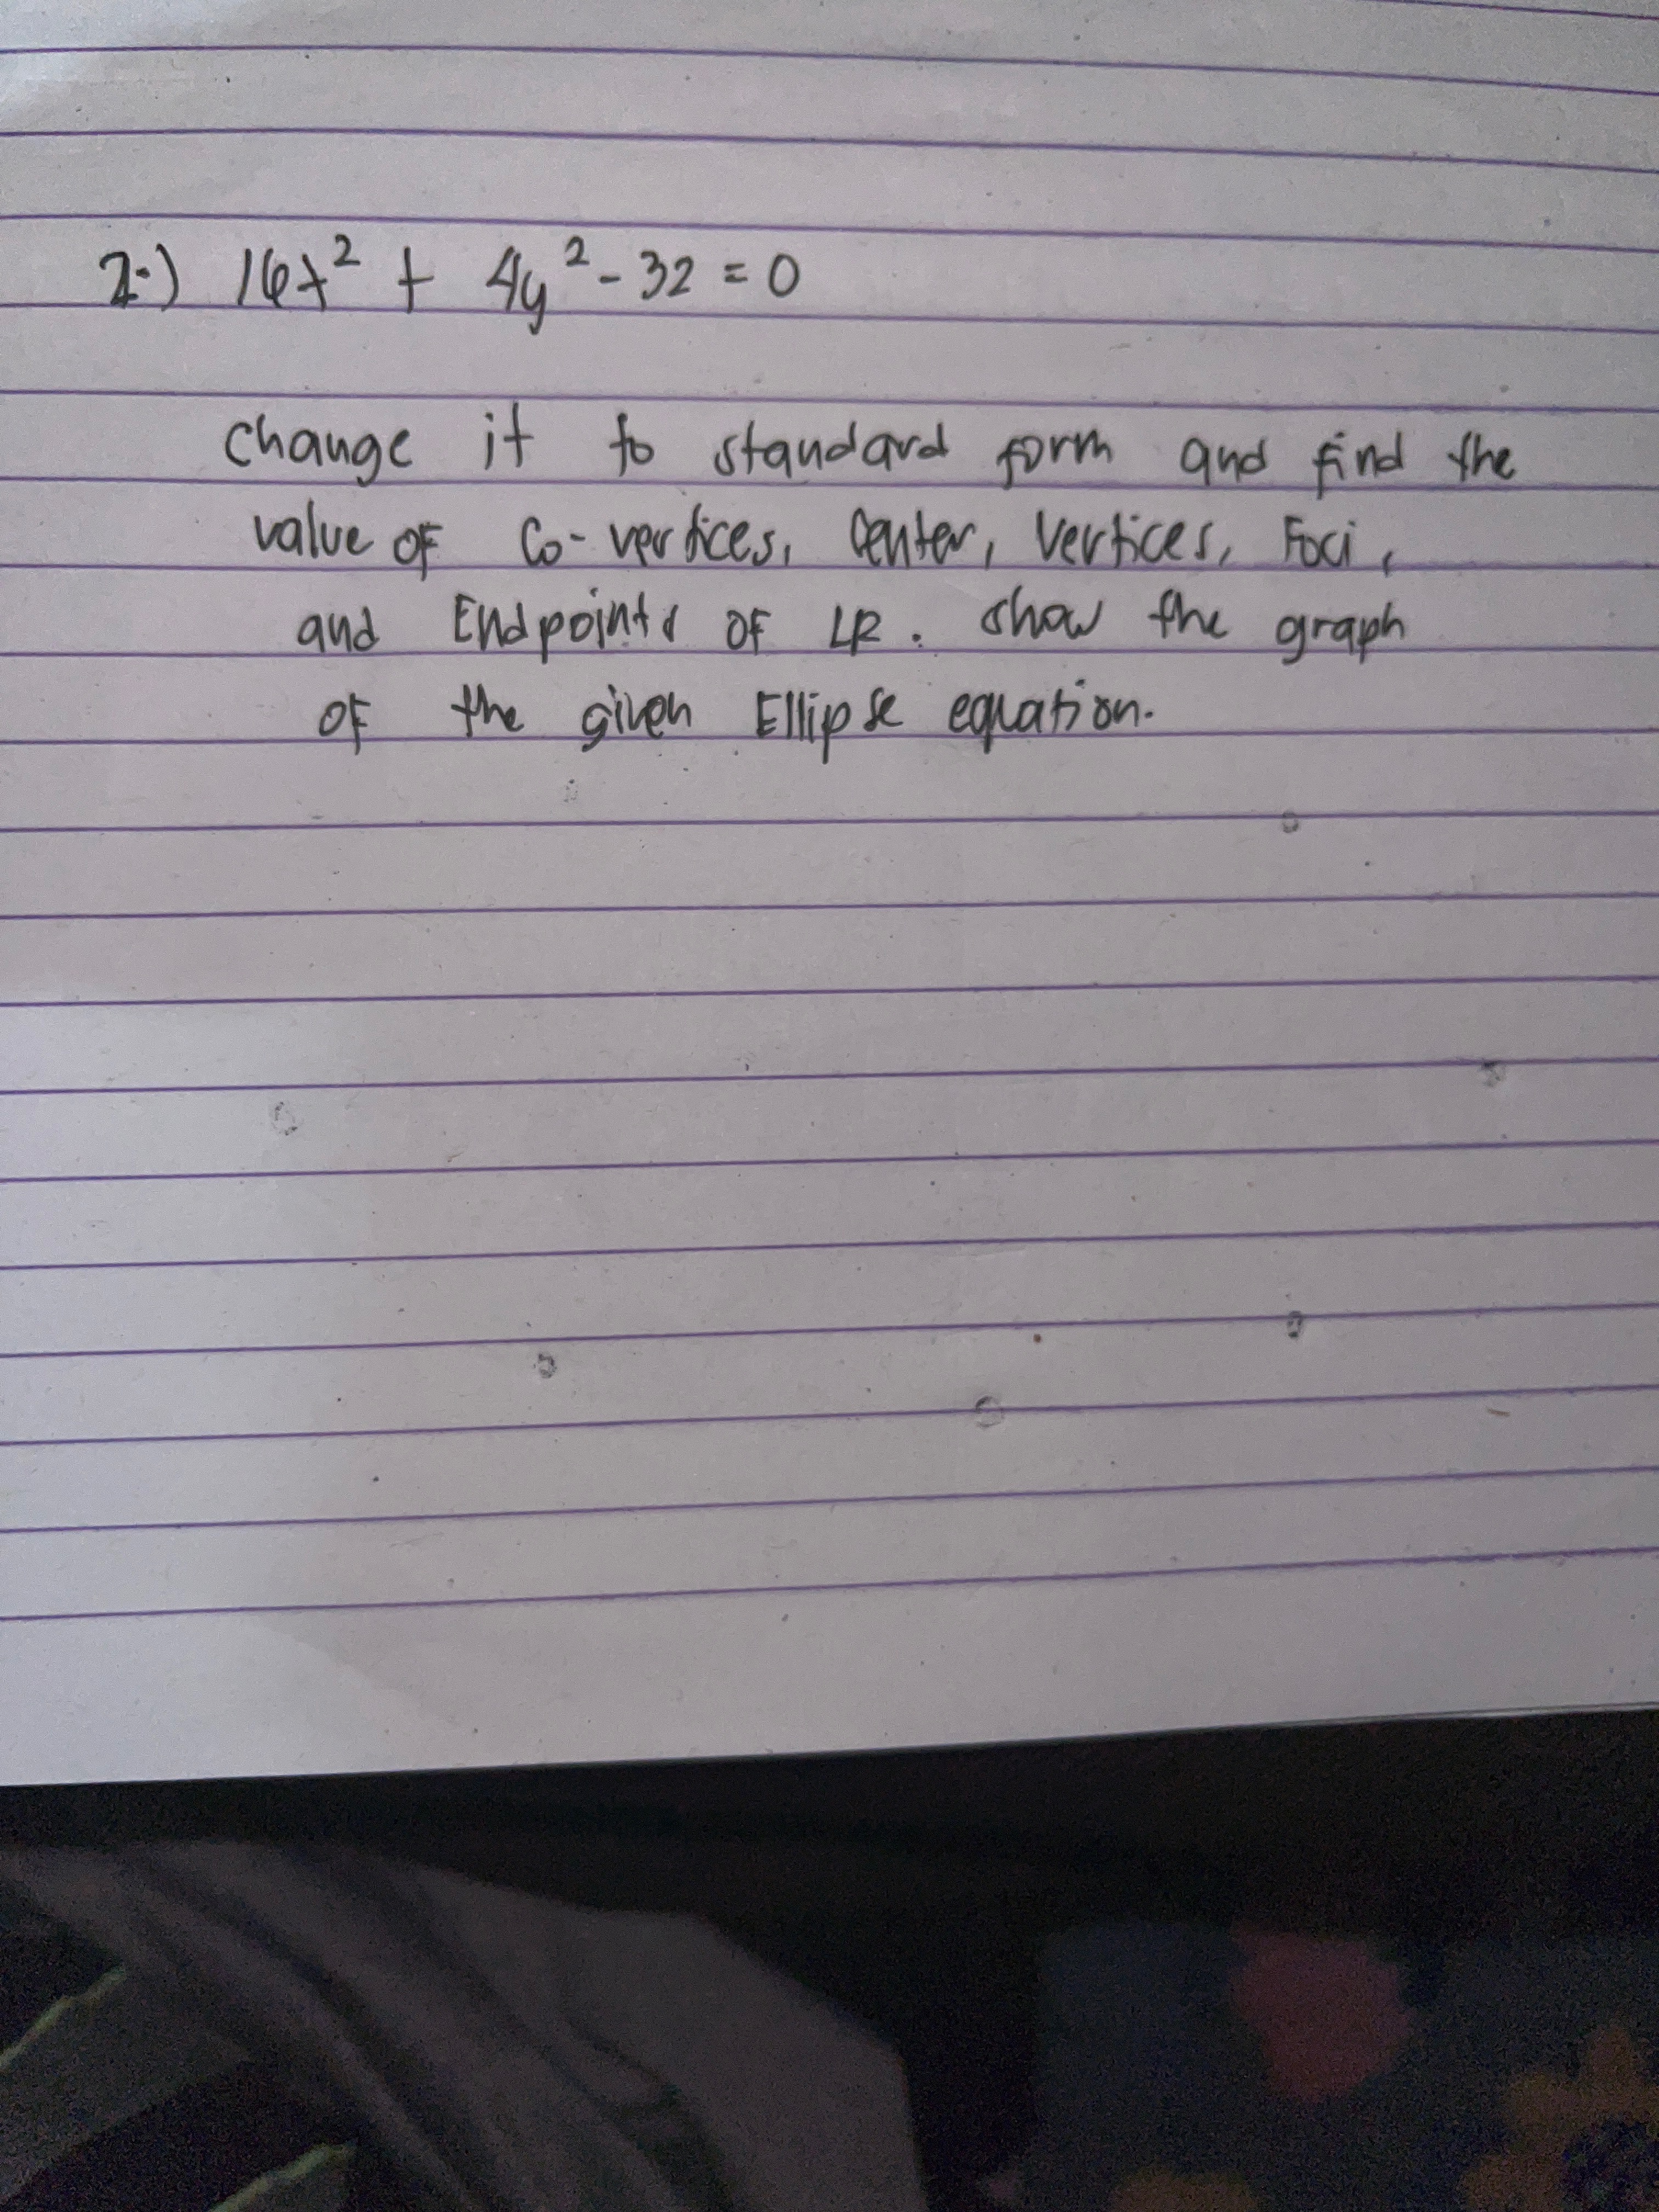 2.) 16x² + 4y² - 32 = 0
change it to standard form and find the
value of Co-vertices, Center, Vertices, Foci,
and Endpoints of LR. show the graph
of the given Ellipse equation.